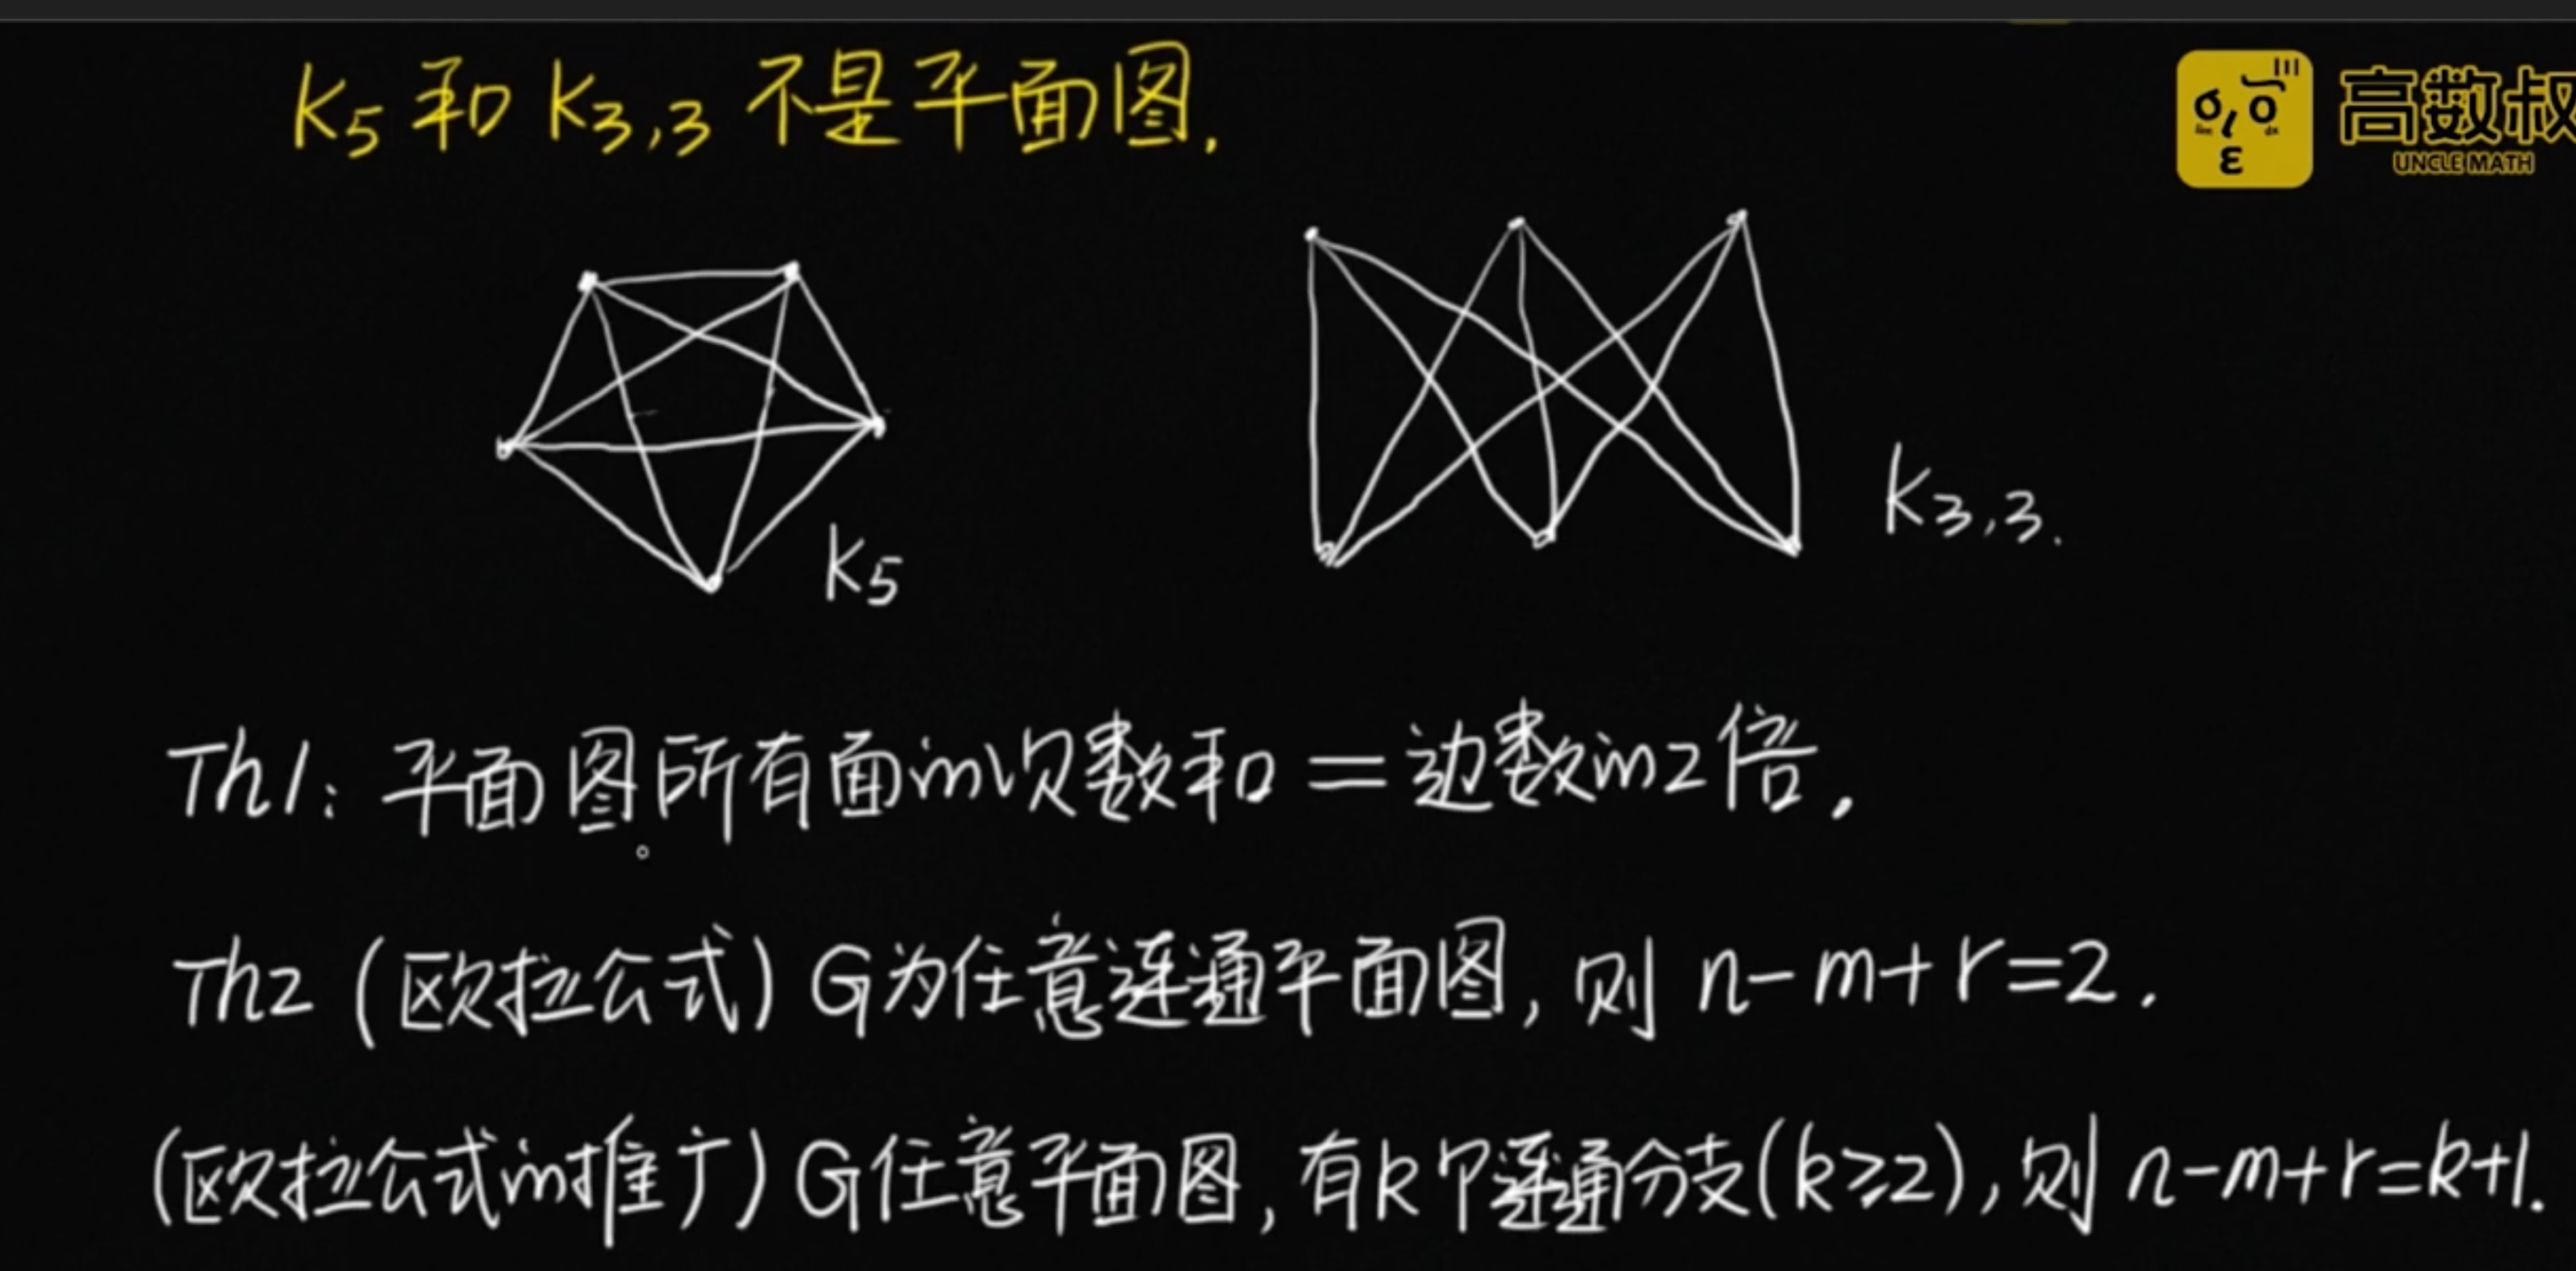 K5和K3,3不是平面图.
高数叔
UNCLE MATH
K5
K3,3.
Th1:平面图所有面的次数和=边数的2倍.
Th2(欧拉公式)G为任意连通平面图,则n-m+r=2.
(欧拉公式的推广)G任意平面图,有k个连通分支(k≥2),则n-m+r=k+1.